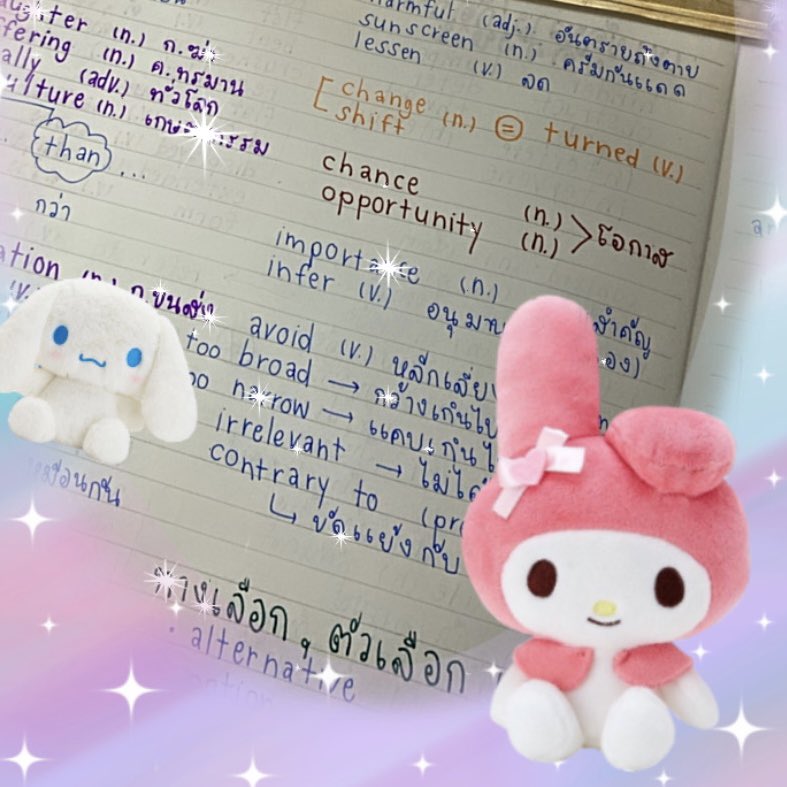 harmful (adj.) อันตรายถึงตาย
sunscreen (n.) ครีมกันแดด
lessen (v.) ลด
(n.) ก.ฆ่า
(n.) ค.ทรมาน
(adv.) ทั่วโลก
(n.)
[change
shift (n.) = turned (v.)
than ...
กว่า
chance (n.)
opportunity (n.) > โอกาส
importance (n.) สำคัญ
infer (v.) อนุมาน
(n.) ก.ขนส่ง
avoid (v.) หลีกเลี่ยง
too broad → กว้างเกินไป
too narrow → แคบเกินไป
irrelevant → ไม่ได้
contrary to
↳ ขัดแย้งกับ
เหมือนกัน
ทางเลือก, ตัวเลือก
· alternative